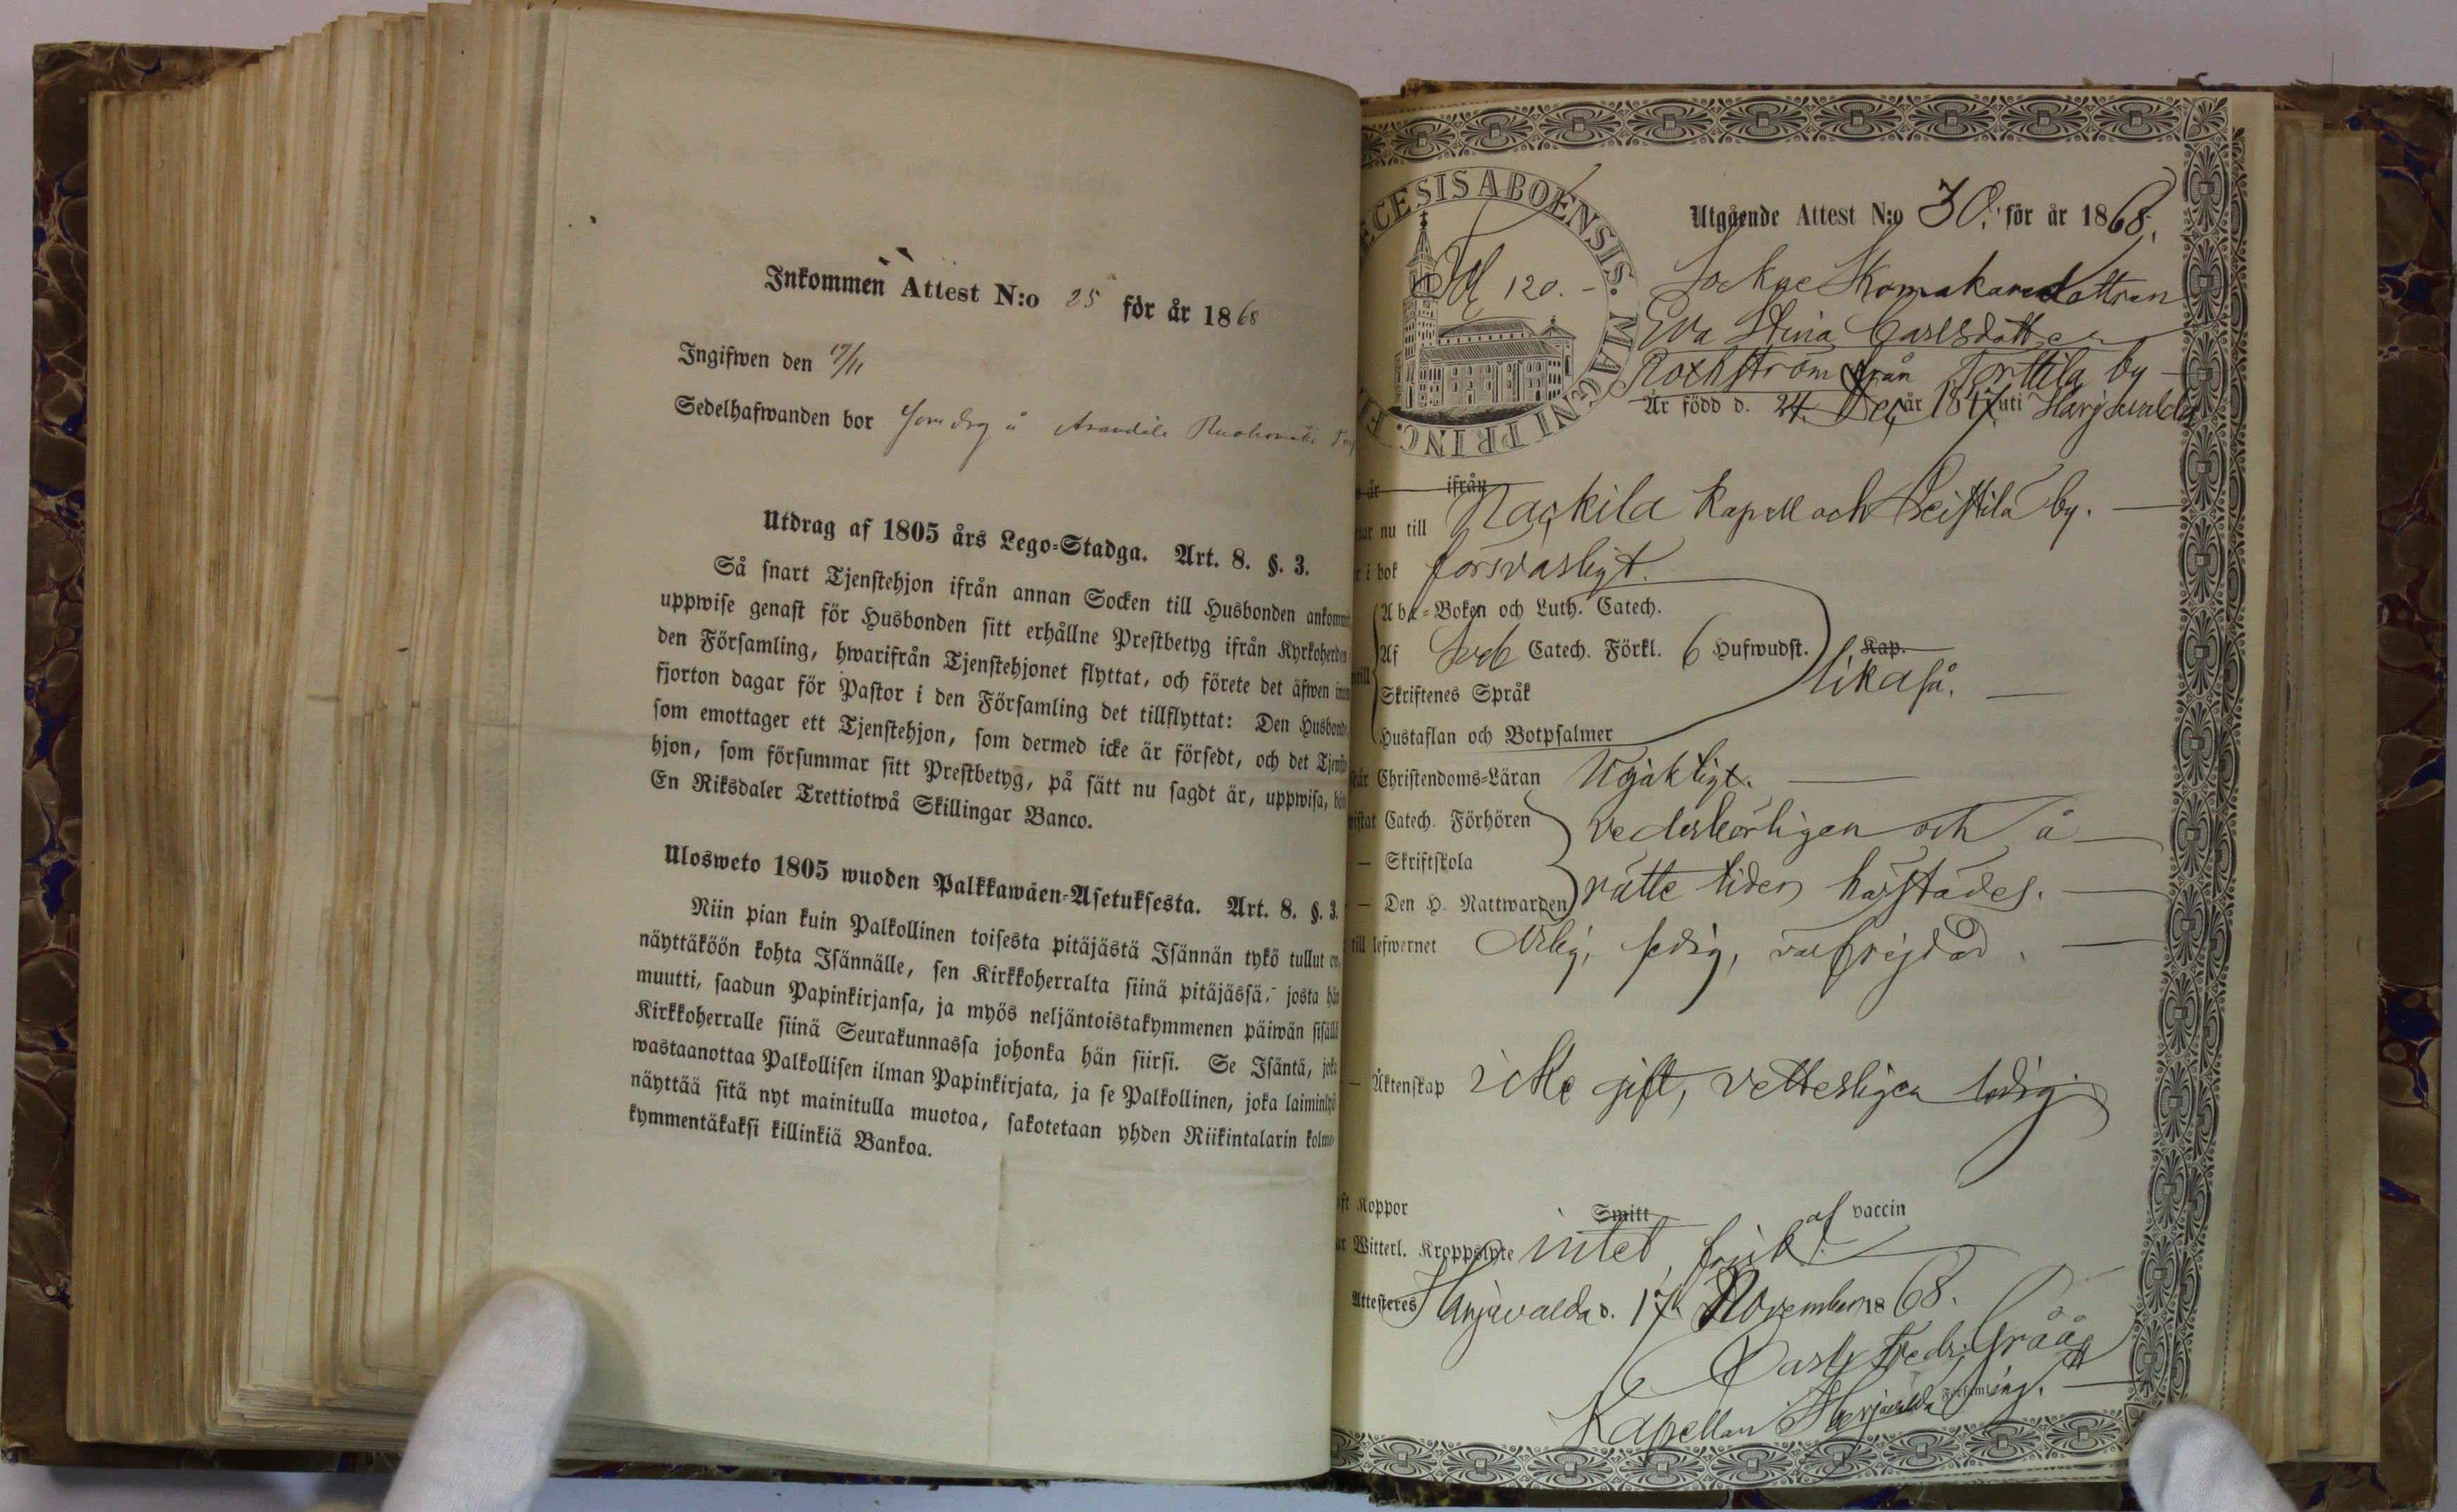 Inkommen Attest N:o 25 för år 1868
Ingifwen den 17/11
Sedelhafwanden bor
Utdrag af 1805 års Lego-Stadga. Art. 8. §. 3.
Så snart Tjenstehjon ifrån annan Socken till Husbonden
uppwise genast för Husbonden sitt erhållne Prestbetyg ifrån Kyrkoherden
den Församling, hwarifrån Tjenstehjonet flyttat, och förete det äfwen
fjorton dagar för Pastor i den Församling det tillflyttat: Den
som emottager ett Tjenstehjon, som dermed icke är försedt, och det
hjon, som försummar sitt Prestbetyg, på sätt nu sagdt är, uppwisa,
En Riksdaler Trettiotwå Skillingar Banco.
Ulosweto 1805 wuoden Palkkawäen-Asetuksesta. Art. 8. §. 3.
Niin pian kuin Palkollinen toisesta pitäjästä Isännän tykö tullut on,
näyttäköön kohta Isännälle, sen Kirkkoherralta siinä pitäjässä, josta hän
muutti, saadun Papinkirjansa, ja myös neljäntoistakymmenen päiwän sisällä
Kirkkoherralle siinä Seurakunnassa johonka hän siirsi. Se Isäntä, joka
wastaanottaa Palkollisen ilman Papinkirjata, ja se Palkollinen, joka
näyttää sitä nyt mainitulla muotoa, sakotetaan yhden Riikintalarin kolme-
kymmentäkaksi killinkiä Bankoa.
CESIS ABOENSIS. MAGNI PRINC. FI
120.
Utgående Attest N:o 30. för år 1868.
Skomakaredottren
Eva Stina Carlsdotter
från Torttila by
Är född d. 24 Dec år 1847 uti Harjavalda
år ifrån
nu till Nackila Kapell och Leistilä by.
i bok försvarligt.
Aba-Boken och Luth. Catech.
Af Sveb Catech. Förkl. 6 Hufwudst. Kap.
Skriftenes Språk likaså.
Hustaflan och Botpsalmer
Christendoms-Läran Nöjaktigt.
Catech. Förhören vederbörligen och å
— Skriftskola
— Den H. Nattwarden rätte tider härstädes.
till lefwernet Ärlig, sedig, välfrejdad.
— Äktenskap icke gift, vetterligen ledig.
Koppor Smitt af vaccin
Witterl. Kroppslyte intet, frisk.
Attesteras Harjavalda d. 17 November 1868.
Carl Fredr. Gråå
Kapellan i Harjavalda Församling.